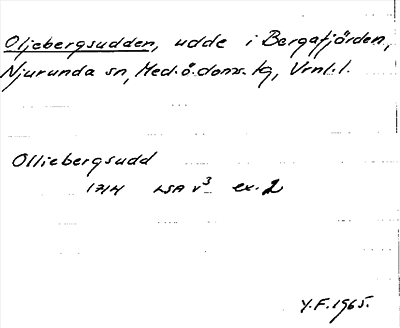 Oljebergsudden, udde i Bergafjärden,
Njurunda sn, Med.ö.doms. tg, Vrnl.l.
Olliebergsudd
1714 LSA V³ ex. 2
Y.F. 1965.